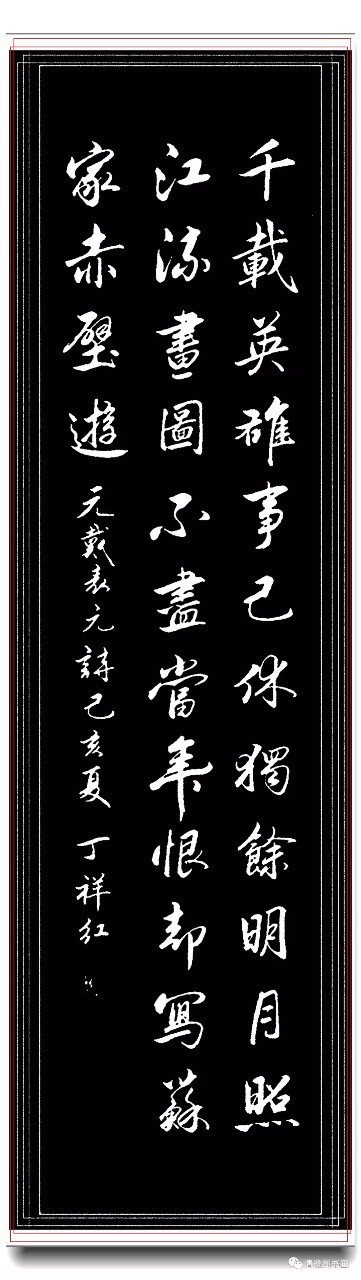 千載英雄事已休獨餘明月照
江流畫圖不盡當年恨却寫蘇
家赤壁遊
元戴表元詩己亥夏丁祥紅